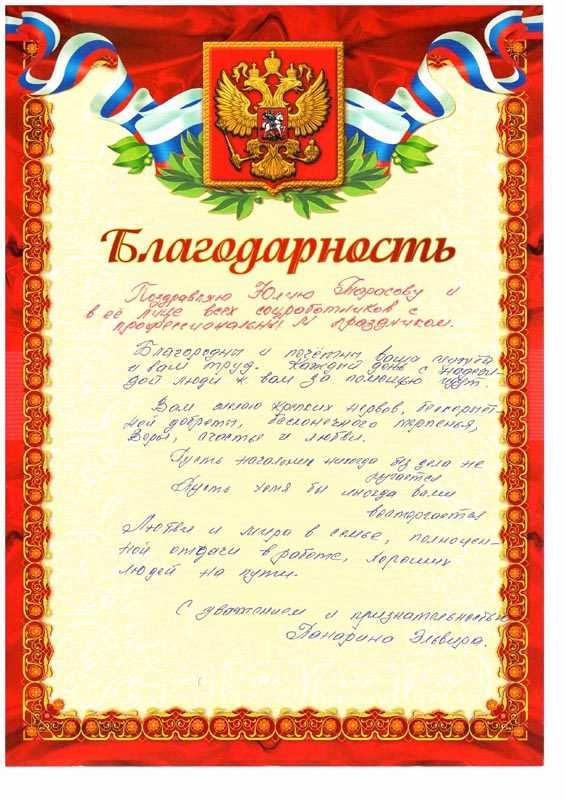 Благодарность
Поздравляю Юлию Тарасову и
в её лице всех соцработников с
профессиональным праздником.
Благородны и почётны ваша служба
и ваш труд. Каждый день с надеж-
дой люди к вам за помощью идут.
Вам желаю крепких нервов, бескорыст-
ной доброты, бесконечного терпенья,
Веры, счастья и любви.
Пусть начальник никогда без дела не
ругается
Пусть хотя бы иногда вами
восторгается
Любви и мира в семье, полноцен-
ной отдачи в работе, хороших
людей на пути.
С уважением и признательностью
Панарина Эльвира.